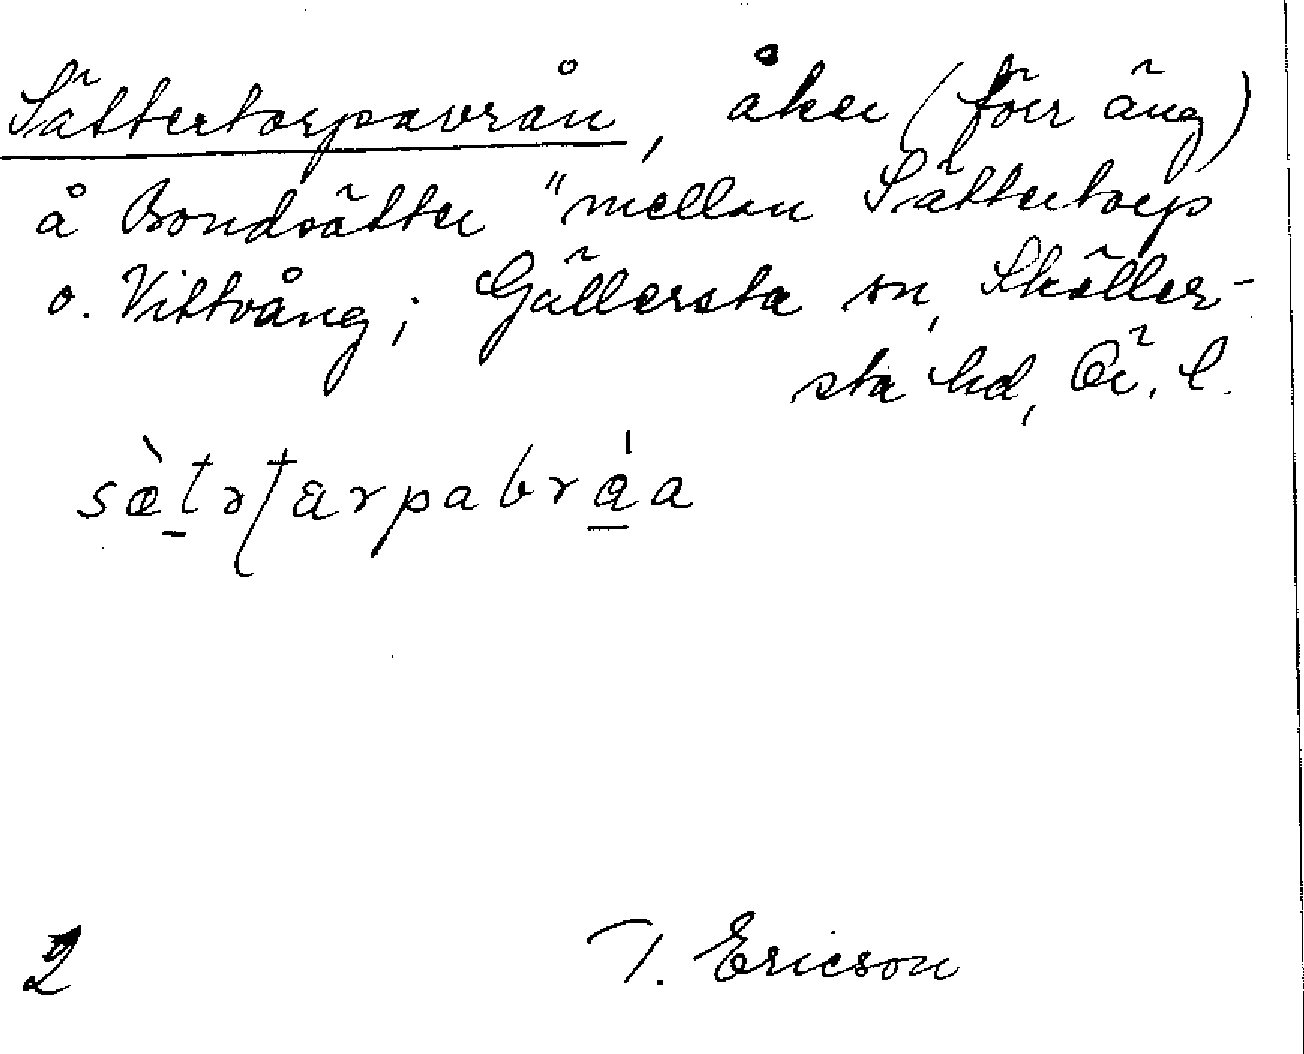 Sättertorpavrån, åker (förr äng)
å Bondsätter "mellan Sättertorp
o. Vittvång; Gällersta sn, Sköller-
sta hd, Ör. l.
2 T. Ericson